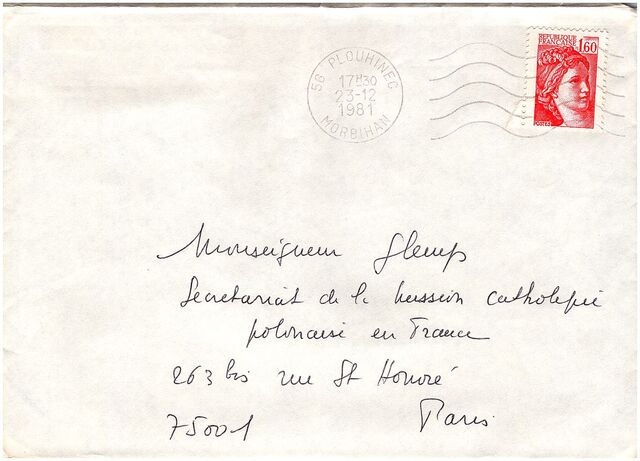 56 PLOUHINEC
17H30
23-12
1981
MORBIHAN
REPUBLIQUE
FRANCAISE 1,60
POSTES
Monseigneur Glemp
Secretariat de la mission catholique
polonaise en France
263 bis rue St Honoré
75001 Paris